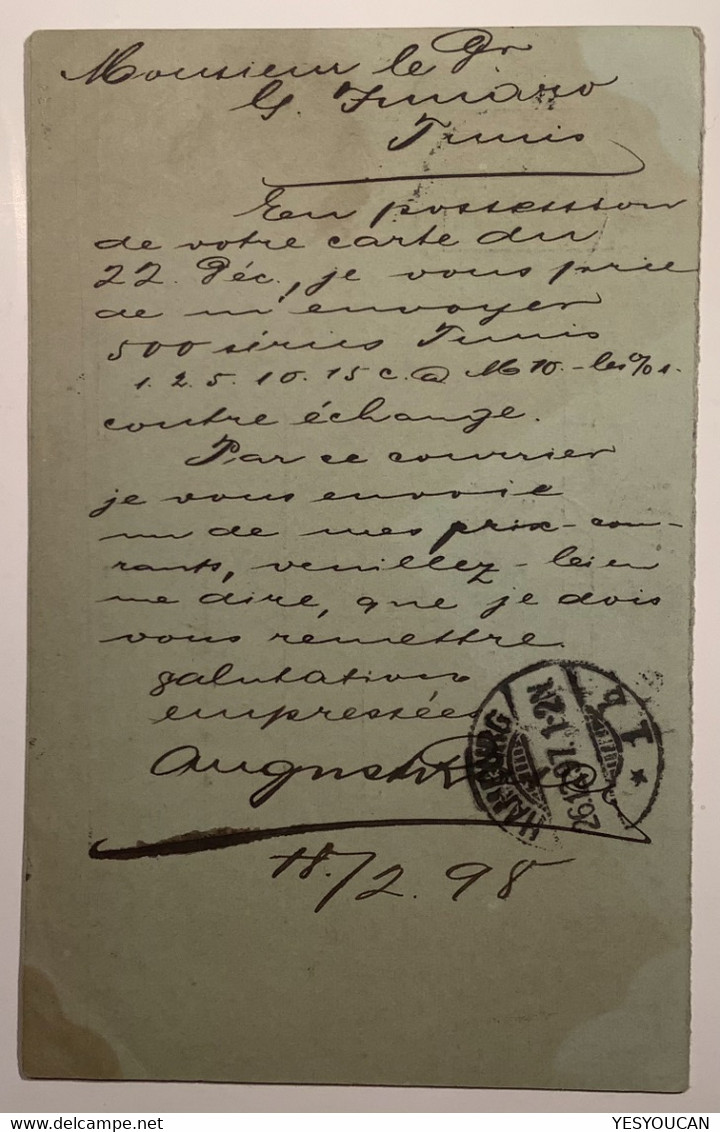 Monsieur le Dr
G. Funaro
Tunis
En possession
de votre carte du
22. Déc., je vous prie
de m'envoyer
500 séries Tunis
1. 2. 5. 10. 15 c. @ M 10.- les % s.
contre échange.
Par ce courrier
je vous envoie
un de mes prix-cou-
rants, veuillez-bien
me dire, que je dois
vous remettre.
Salutations
empressées
August
HAMBURG
26.12.97. 1-2N
* 1 d
18./2. 98
YESYOUCAN